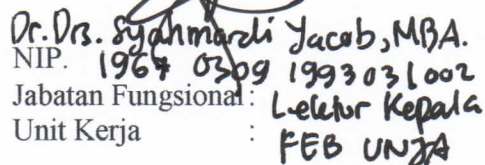 Dr. Drs. Syahmardi Yacob, MBA.
NIP. 1967 0309 1993031002
Jabatan Fungsional : Lektor Kepala
Unit Kerja : FEB UNJA